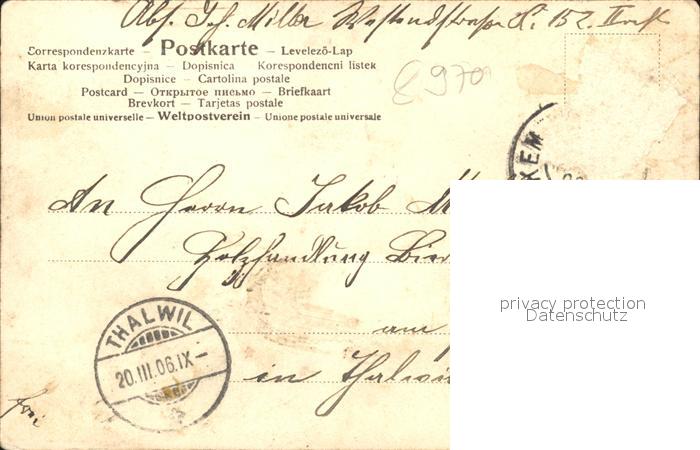 Abs. Müller
Correspondenzkarte – Postkarte – Levelezö-Lap
Karta korespondencyjna – Dopisnica Korespondencni listek
Dopisnice – Cartolina postale
Postcard – Открытое письмо – Briefkaart
Brevkort – Tarjetas postale
Union postale universelle – Weltpostverein – Unione postale universale
An Herrn Jakob
Holzhandlung
am
in
THALWIL
20.III.06.IX–
privacy protection
Datenschutz